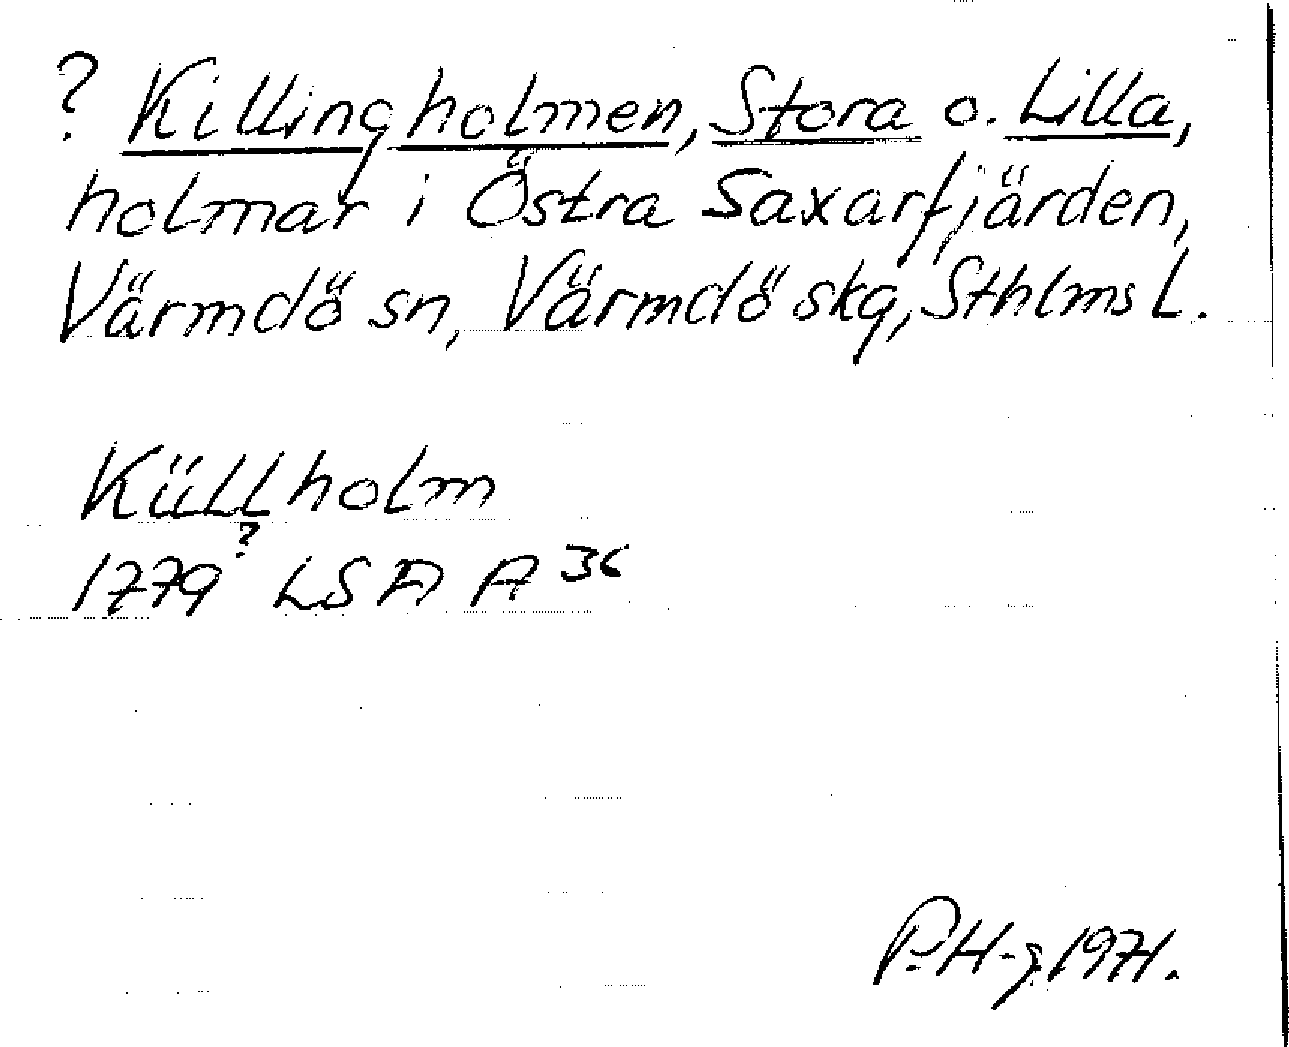 ? Killingholmen, Stora o. Lilla,
holmar i Östra Saxarfjärden,
Värmdö sn, Värmdö skg, Sthlms L.
Küllholm
1779? LSA A 36
P.H-g. 1971.